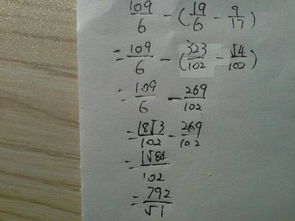 109/6 - (19/6 - 9/17)
= 109/6 - (323/102 - 54/102)
= 109/6 - 269/102
= 1853/102 - 269/102
= 1584/102
= 792/51